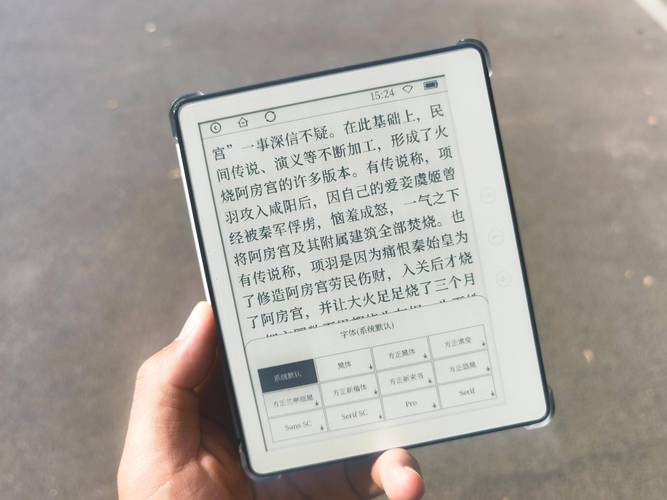 15:24
宫”一事深信不疑。在此基础上，民
间传说、演义等不断加工，形成了火
烧阿房宫的许多版本。有传说称，项
羽攻入咸阳后，因自己的爱妾虞姬曾
经被秦军俘虏，恼羞成怒，一气之下
将阿房宫及其附属建筑全部焚烧。也
有传说称，项羽是因为痛恨秦始皇为
了修造阿房宫劳民伤财，入关后才烧
了阿房宫，并让大火足足烧了三个月
字体(系统默认)
系统默认 黑体 方正黑体
方正兰亭细黑 方正新楷体 方正新宋书 方正悠黑
Sans SC Serif SC Pro Serif